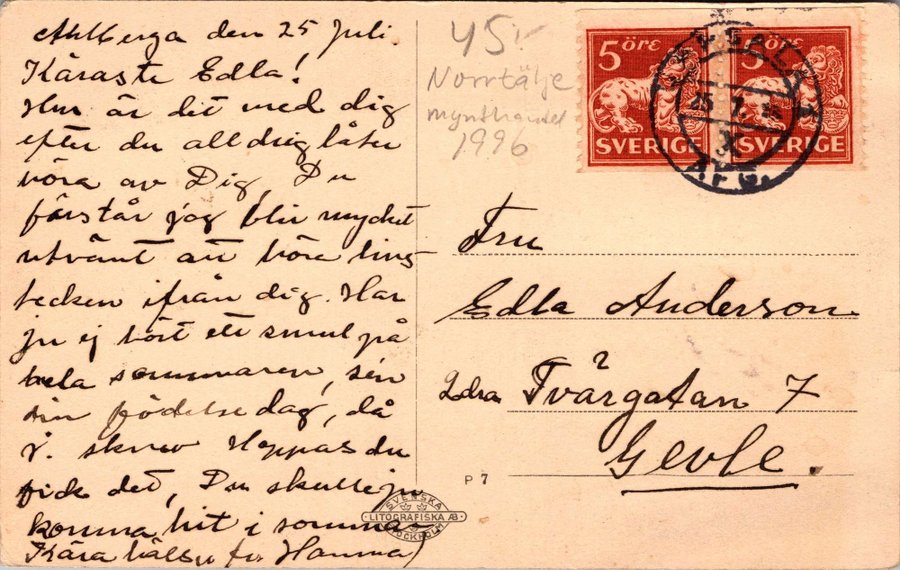 den 25 Juli.
Käraste Edla!
Hur är det med dig
efter du alldrig låter
höra av Dig, Du
förstår jag blir mycket
utvämt att höra
tecken ifrån dig. Har
ju ej hört ett smul på
hela sommaren, sen
din födelsedag, då
j. skrev Hoppas du
fick det, Du skulle ju
komma hit i somma
Kära häls. Hanna
45:-
Norrtälje
mynthandel
1996
5 ÖRE 5 ÖRE
SVERIGE SVERIGE
25 7
Fru
Edla Anderson
2dra Tvärgatan 7
Gevle.
P 7
SVENSKA
LITOGRAFISKA AB
STOCKHOLM